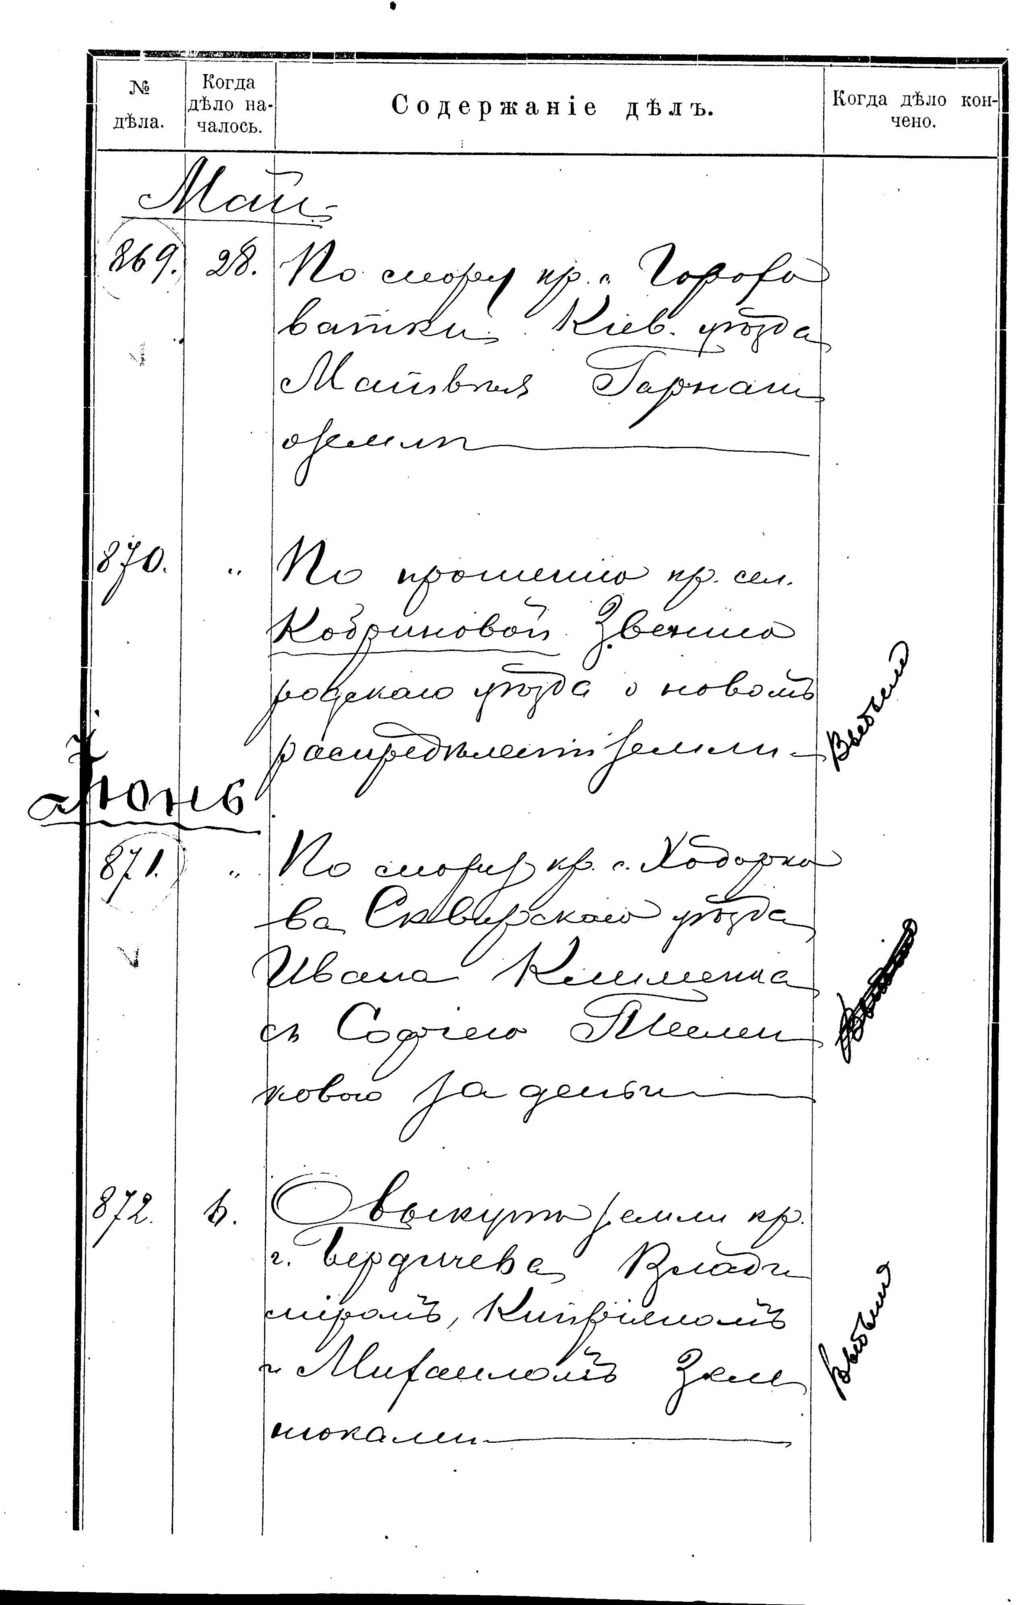 № дѣла.
Когда дѣло на-чалось.
Содержаніе дѣлъ.
Когда дѣло кон-чено.
Май
869. 28. По спору кр. с. Горохо
ватки Кіев. уѣзда
Матвѣя Гарнаги
о землѣ
870. " По прошенію кр. сел.
Кобриновой Звениго
родскаго уѣзда о новомъ
распредѣленіи земли
Выбыли
Іюнь
871. " По спору кр. с. Ходорко
ва Сквирскаго уѣзда
Ивана Клименка
съ Софіею
ковою за деньги
872. О выкупѣ земли кр.
г. Бердичева Влади
міромъ, Кипріяномъ
и Михаиломъ Зале
нюками
Выбыли